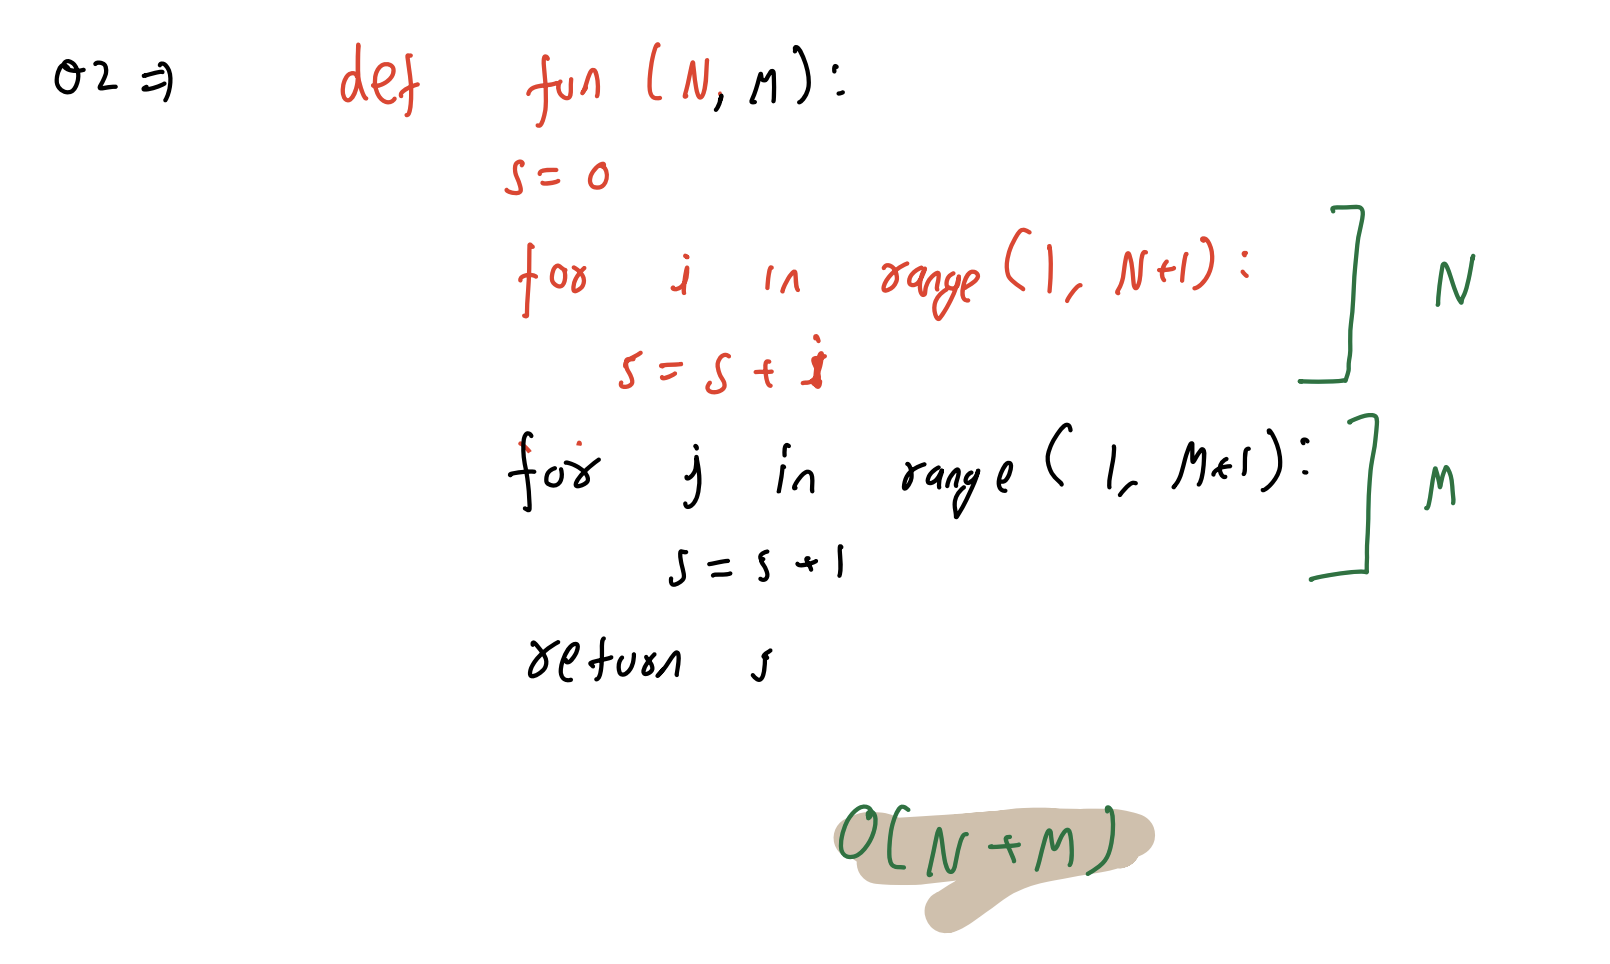 Q2 ⇒ def fun (N, M):
s = 0
for i in range(1, N+1): ] N
s = s + i
for j in range (1, M+1): ] M
s = s + 1
return s
O(N+M)